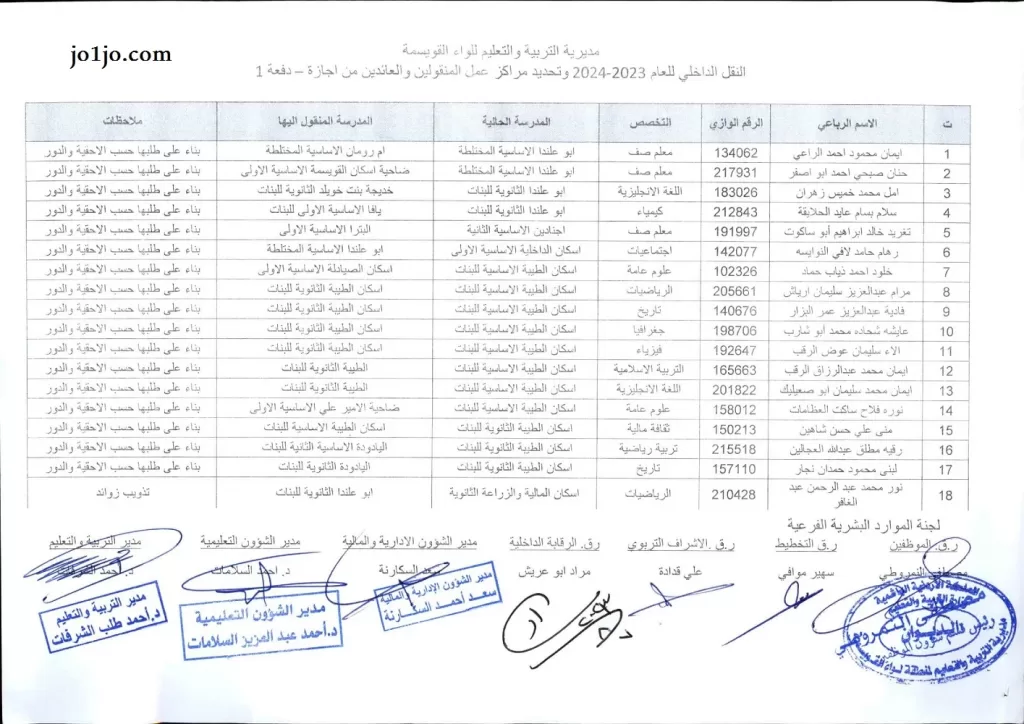 jo1jo.com
مديرية التربية والتعليم للواء القويسمة
النقل الداخلي للعام 2023-2024 وتحديد مراكز عمل المنقولين والعائدين من اجازة – دفعة 1
ت الاسم الرباعي الرقم الوزاري التخصص المدرسة الحالية المدرسة المنقول اليها ملاحظات
1 ايمان محمود احمد الراعي 134062 معلم صف ابو علندا الاساسية المختلطة ام رومان الاساسية المختلطة بناء على طلبها حسب الاحقية والدور
2 حنان صبحي احمد ابو اصفر 217931 معلم صف ابو علندا الاساسية المختلطة ضاحية اسكان القويسمة الاساسية الاولى بناء على طلبها حسب الاحقية والدور
3 امل محمد خميس زهران 183026 اللغة الانجليزية ابو علندا الثانوية للبنات خديجة بنت خويلد الثانوية للبنات بناء على طلبها حسب الاحقية والدور
4 سلام بسام عايد الحلايقة 212843 كيمياء ابو علندا الثانوية للبنات يافا الاساسية الاولى للبنات بناء على طلبها حسب الاحقية والدور
5 تغريد خالد ابراهيم أبو ساكوت 191997 معلم صف اجنادين الاساسية الثانية البترا الاساسية الاولى بناء على طلبها حسب الاحقية والدور
6 رهام حامد لافي النوايسه 142077 اجتماعيات اسكان الداخلية الاساسية الاولى ابو علندا الاساسية المختلطة بناء على طلبها حسب الاحقية والدور
7 خلود احمد ذياب حماد 102326 علوم عامة اسكان الطيبة الاساسية للبنات اسكان الصيادلة الاساسية الاولى بناء على طلبها حسب الاحقية والدور
8 مرام عبدالعزيز سليمان ارياش 205661 الرياضيات اسكان الطيبة الاساسية للبنات اسكان الطيبة الثانوية للبنات بناء على طلبها حسب الاحقية والدور
9 فادية عبدالعزيز عمر البزار 140676 تاريخ اسكان الطيبة الاساسية للبنات اسكان الطيبة الثانوية للبنات بناء على طلبها حسب الاحقية والدور
10 عايشه شحاده محمد أبو شارب 198706 جغرافيا اسكان الطيبة الاساسية للبنات اسكان الطيبة الثانوية للبنات بناء على طلبها حسب الاحقية والدور
11 الاء سليمان عوض الرقب 192647 فيزياء اسكان الطيبة الاساسية للبنات اسكان الطيبة الثانوية للبنات بناء على طلبها حسب الاحقية والدور
12 ايمان محمد عبدالرزاق الرقب 165663 التربية الاسلامية اسكان الطيبة الاساسية للبنات الطيبة الثانوية للبنات بناء على طلبها حسب الاحقية والدور
13 ايمان محمد سليمان ابو صعيليك 201822 اللغة الانجليزية اسكان الطيبة الاساسية للبنات الطيبة الثانوية للبنات بناء على طلبها حسب الاحقية والدور
14 نوره فلاح ساكت العظامات 158012 علوم عامة اسكان الطيبة الاساسية للبنات ضاحية الامير علي الاساسية الاولى بناء على طلبها حسب الاحقية والدور
15 منى علي حسن شاهين 150213 ثقافة مالية اسكان الطيبة الثانوية للبنات اسكان الطيبة الاساسية للبنات بناء على طلبها حسب الاحقية والدور
16 رقيه مطلق عبدالله العجالين 215518 تربية رياضية اسكان الطيبة الثانوية للبنات اليادودة الاساسية الثانية للبنات بناء على طلبها حسب الاحقية والدور
17 لبنى محمود حمدان نجار 157110 تاريخ اسكان الطيبة الثانوية للبنات اليادودة الثانوية للبنات بناء على طلبها حسب الاحقية والدور
18 نور محمد عبد الرحمن عبد الغافر 210428 الرياضيات اسكان المالية والزراعة الثانوية ابو علندا الثانوية للبنات تذويب زوائد
لجنة الموارد البشرية الفرعية
ر.ق الموظفين ر.ق التخطيط ر.ق .الاشراف التربوي رق. الرقابة الداخلية مدير الشؤون الادارية والمالية مدير الشؤون التعليمية مدير التربية والتعليم
مصطفى النمروطي سهير موافي علي قدادة مراد ابو عريش سعد السكارنة د. احمد السلامات د. احمد الشرفات
مدير الشؤون الإدارية والمالية
سعد أحمد السكارنة
مدير الشؤون التعليمية
د.أحمد عبد العزيز السلامات
مدير التربية والتعليم
د.أحمد طلب الشرفات
المملكة الأردنية الهاشمية
وزارة التربية والتعليم
مديرية التربية والتعليم لمنطقة لواء القويسمة